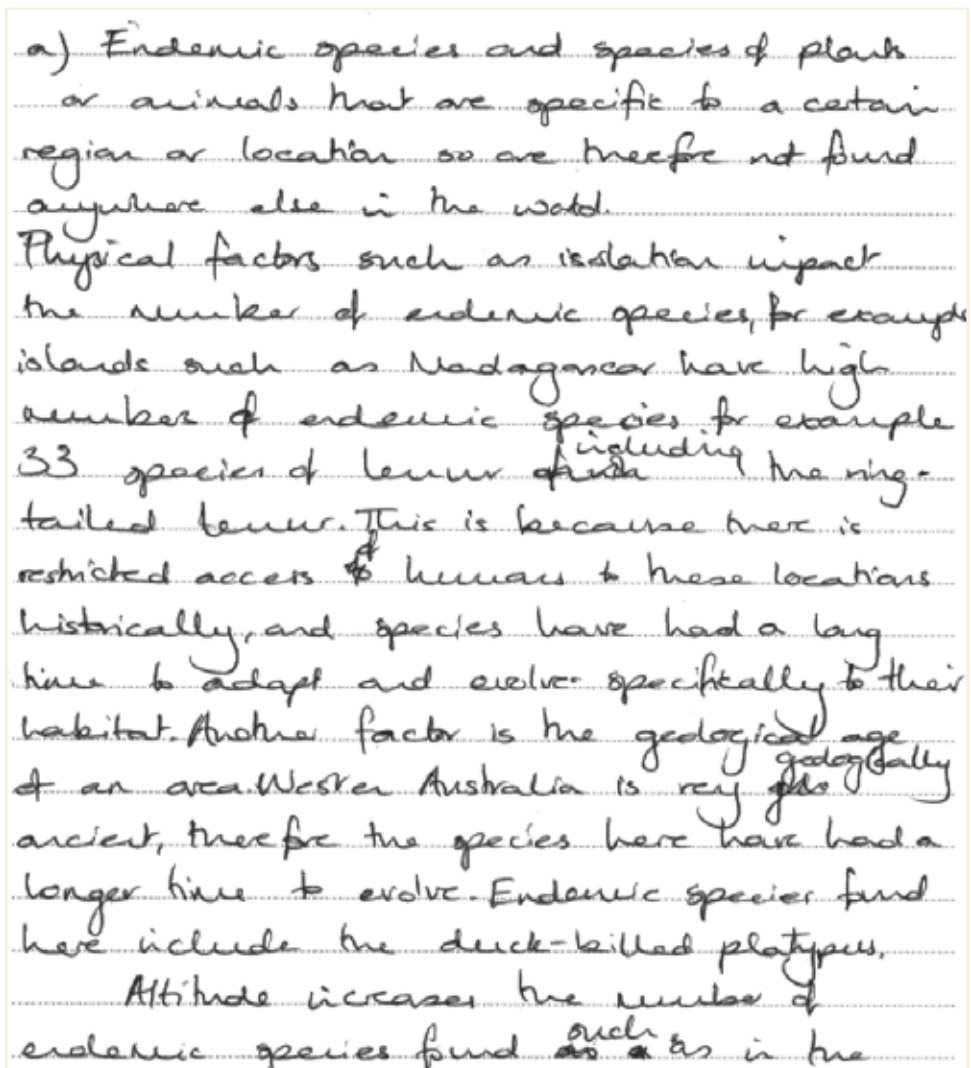 a) Endemic species and species of plants
or animals that are specific to a certain
region or location so are therefre not found
anywhere else in the world.
Physical factors such as isolation impact
the number of endemic species, for example
islands such as Madagascar have high
number of endemic species for example
33 species of lemur including the ring-
tailed lemur. This is because there is
restricted access of humans to these locations
historically, and species have had a long
time to adapt and evolve specifically to their
habitat. Another factor is the geological age
of an area. Wester Australia is very geologically
ancient, therefore the species here have had a
longer time to evolve. Endemic species found
here include the duck-billed platypus.
Altitude increases the number of
endemic species found such as in the